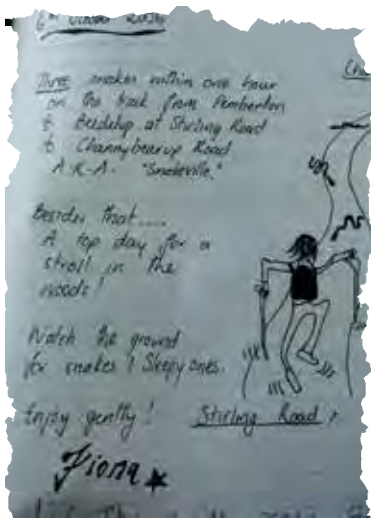 6th
Three snakes within one hour
on the track from Pemberton
to Beedelup at Stirling Road
to Channybearup Road
A.K.A. "Snakeville."
Besides that....
A top day for a
stroll in the
woods!
Watch the ground
for snakes! Sleepy ones.
Enjoy gently!
Stirling Road
Fiona